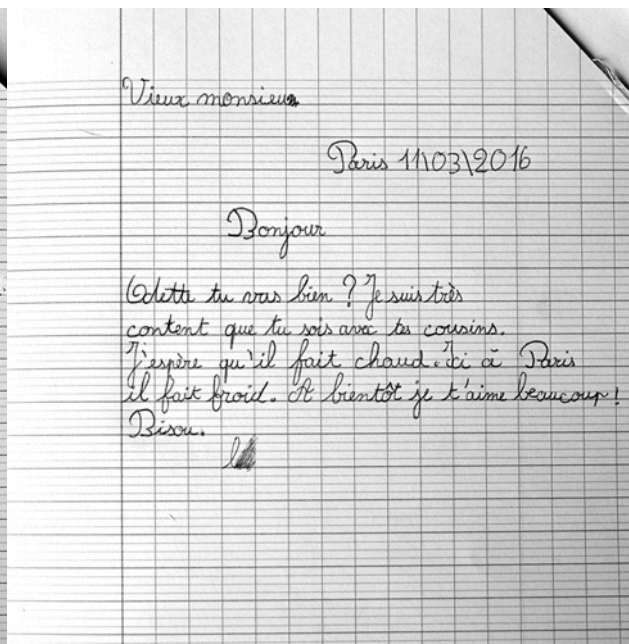 Vieux monsieur
Paris 11\03\2016
Bonjour
Odette tu vas bien ? Je suis très
content que tu sois avec tes cousins.
J'espère qu'il fait chaud. Ici à Paris
il fait froid. A bientôt je t'aime beaucoup !
Bisou.